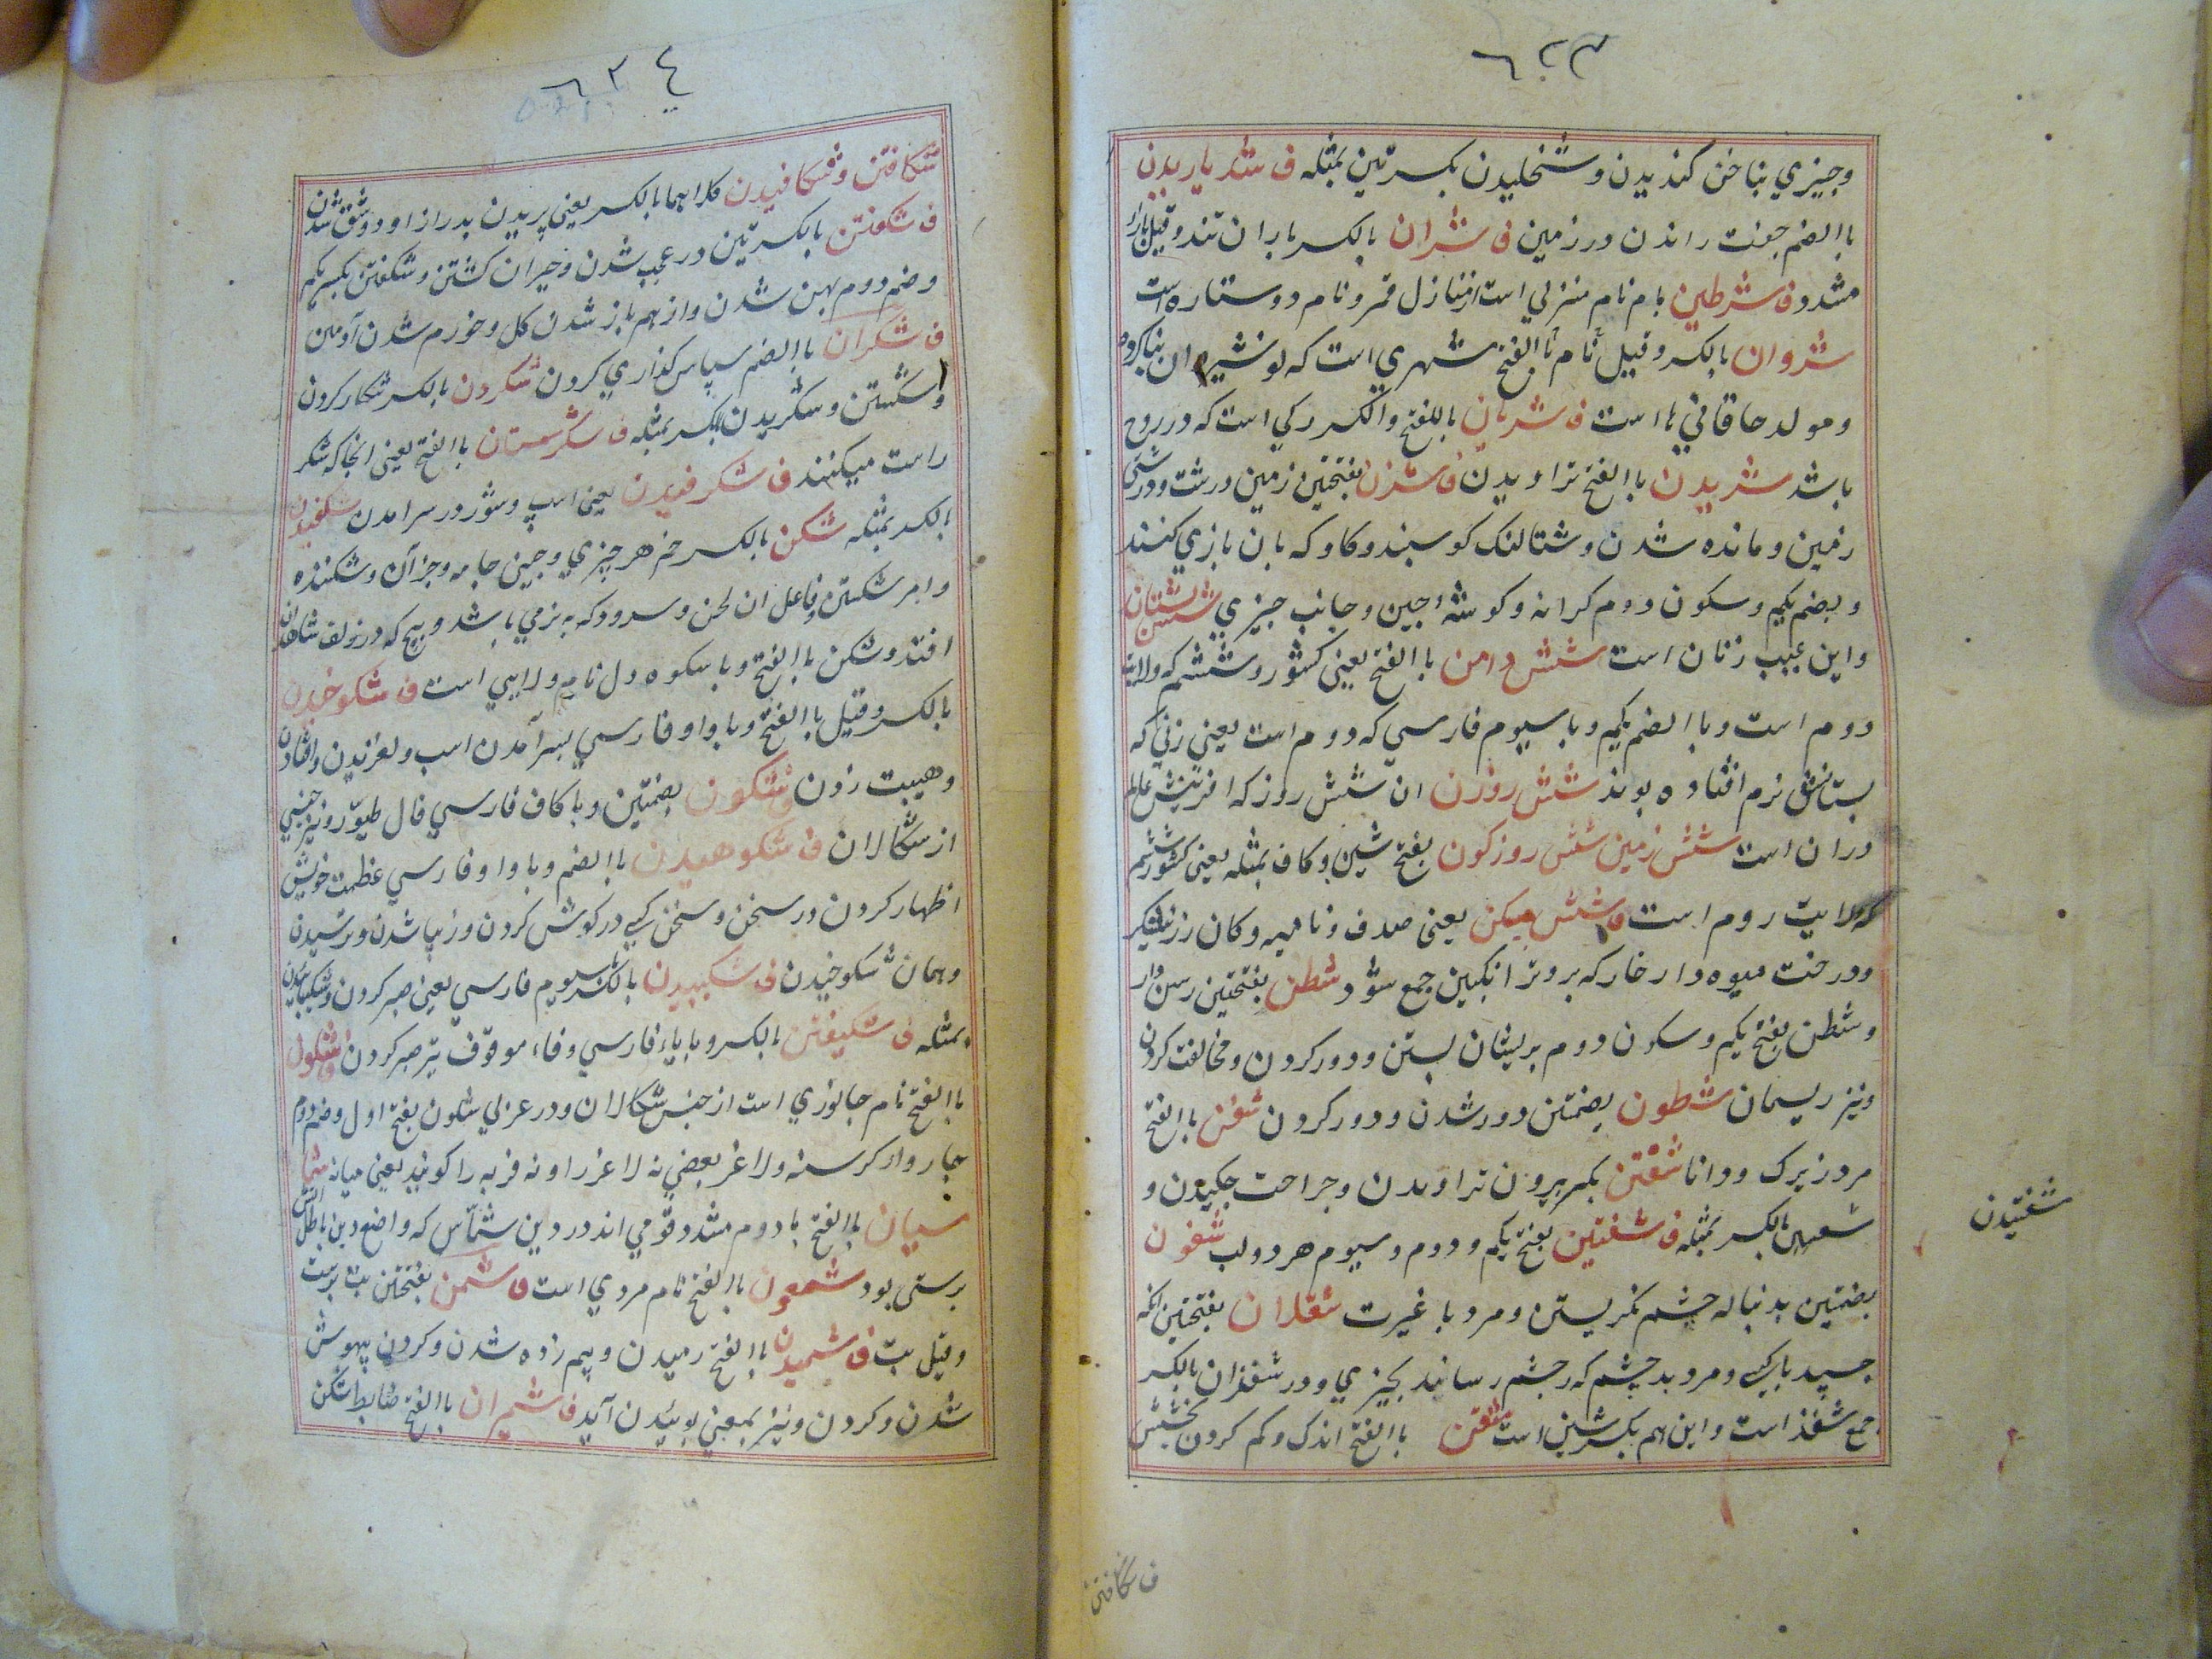 ٦٢٣
وچیزي بناخن کندیدن وشخلیدن بکسرتین بمثله ف شدیاریدن
باالضم جفت راندن ورزمین ف شران بالکسر باران تند وقیل بازاء
مشدد ف شرطین بام نام منزلی است ازمنازل قمر ونام دو ستاره است
شروان بالکسر وقیل باالفتح شهري است که نوشیروان بناکرده
ومولد خاقاني باست ف شریان باالفتح والکسر رکی است که درروح
باشد شریدن باالفتح تراویدن ف شزن بفتحتین زمین درشت ودرشتی
زمین ومانده شدن وشتالنک کوسپند وکاو که بان بازي کنند
وبضم یکم وسکون دوم کرانه وکوشه جبین وجانب چیزي شش پستان
واین عیب زنان است شش دامن باالفتح یعنی کشور وششم که ولایت
دوم است وباالضم یکم وباسیوم فارسي که دوم است یعنی زني که
پستانش نرم افتاده بوند شش روزن ان شش روز که افرینش عالم
دران است شش زمین شش روزکون بفتح شین وکاف بمثله یعنی کشور ششم
که ولایت روم است ف شش میکن یعنی صدف ونامیه وکان زر
ودرخت میوه دار خار که بروترانکبین جمع شود شطن بفتحتین رسن دراز
وشطن بفتح یکم وسکون دوم بریشان بستن ودورکردن ومخالفت کردن
ونیز ریسمان شطون بضمتین دور شدن ودورکردن شفن باالفتح
مرد زیرک ودانا شفتن بکسر بیرون تراویدن وجراحت چکیدن و
بالکسر بمثله ف شفتین بفتح یکم ودوم وسیوم هردولب شفون
بضمتین بدنباله چشم نکریستن ومرد باغیرت شقذان بفتحتین انکه
چسپد باکسي ومرد بدچشم که چشم رساند بچیزي ودر شقذان بالکسر
جمع شقذ است واین هم بکسر شین است شقن باالفتح اندک وکم کردن بخشش
شفتیدن
ف شکافتن
٦٢٤
شکافتن وشکافیدن کلاهما بالکسر یعنی پریدن بدرازا ودوشق شدن
ف شکفتن بابکسرتین درعجب شدن وحیران کشتن وشکفتن بکسر یکم
وضم دوم پهن شدن وازهم باز شدن کل وخورم شدن آدمین
ف شکران باالضم سپاس کذاري کردن شکردن بالکسر شکار کردن
وشکستن وشکریدن بالکسر بمثله ف شکرستان باالفتح یعنی انجا که شکر
راست میکنند ف شکرفیدن یعنی اسپ وستور درسرامدن شکفیدن
بالکسر بمثله شکن بالکسر خم هر چیزي وچین جامه وجزآن وشکننده
وامر شکستن وفاعل ان لحن وسرود که بزمي باشد وپیچ که درزلف شاهدان
افتد وشکن باالفتح وباسکوه دل نام ولایتي است ف شکوخیدن
بالکسر وقیل باالفتح وباواو فارسي بسرآمدن اسب ولغزیدن وافتادن
وهیبت زدن شکون بضمتین وباکاف فارسي فال طیور ونیز جنسي
ازشکالان ف شکوهیدن باالضم وباواو فارسي عظمت خویش
اظهار کردن ودرسخن وسخن کسی درکوش کردن وزیبا شدن وترسیدن
وهمان شکوخیدن ف شکیبیدن بالکسر بسیوم فارسي یعنی صبر کردن وشکیباییدن
بمثله ف شکیفتن بالکسر وبایاء فارسي وفاء موقوف نیز صبر کردن ف شکول
باالفتح نام جانوري است از جنس شکالان ودرعربي شکون بفتح اول وضم دوم
چارواء کرسنه ولاغر بعضي نه لاغر را ونه فربه را کویند یعنی میانه شما
سیان باالفتح بادوم مشدد قومي اند دردین شماس که واضع دین باطل اتش
پرستی بود شمعون باالفتح نام مردي است ف شمن بفتحتین بت پرست
وقیل بت ف شمیدن باالفتح رمیدن وبیم زده شدن وکردن بیهوش
شدن وکردن ونیز بمعنی بوئیدن آید ف شمیران باالفتح ضابط استکن